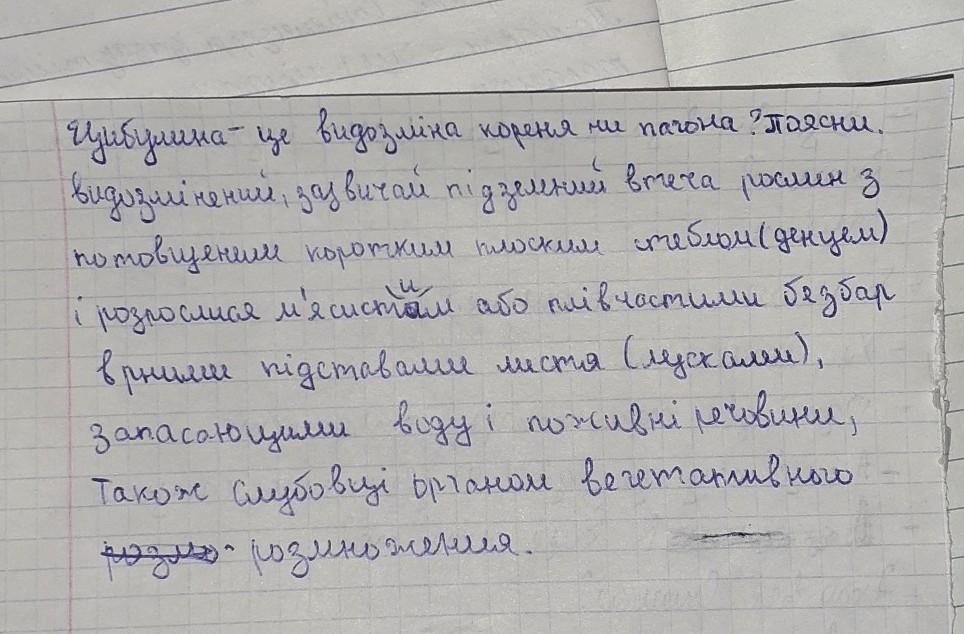 Цибулина - це видозміна кореня чи пагона? Поясни.
видозмінений, зазвичай підземний втеча рослин з
потовщеним коротким плоским стеблом (денцем)
і розрослися м'ясистим або плівчастими безбар
врними підставами листя (лускалми),
запасающими воду і поживні речовини,
також слубовці органом вегетативного
розмноження.